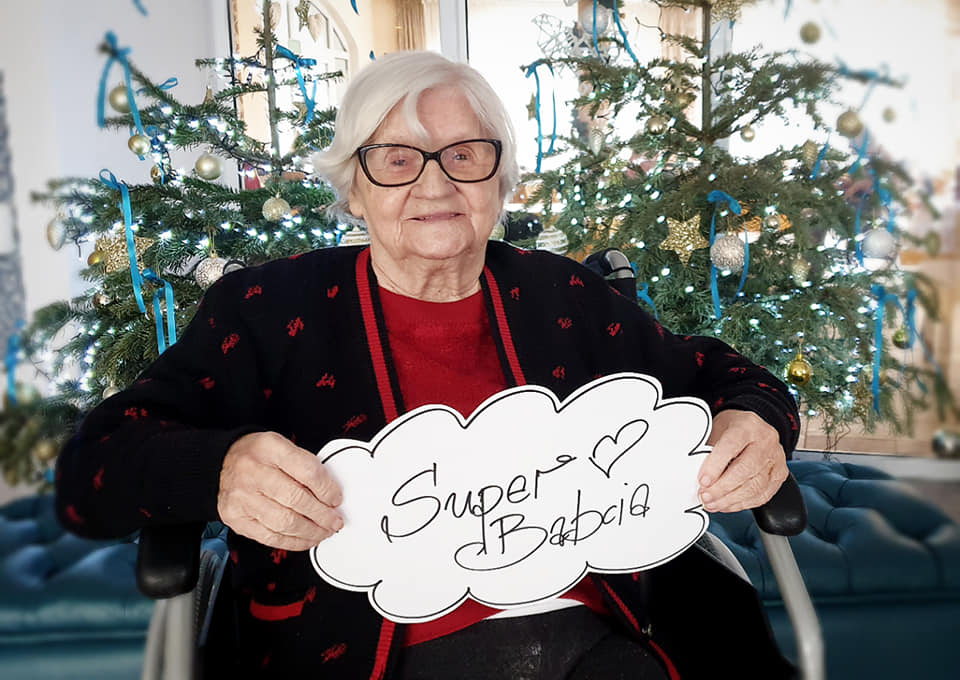 Super ♡
Babcia